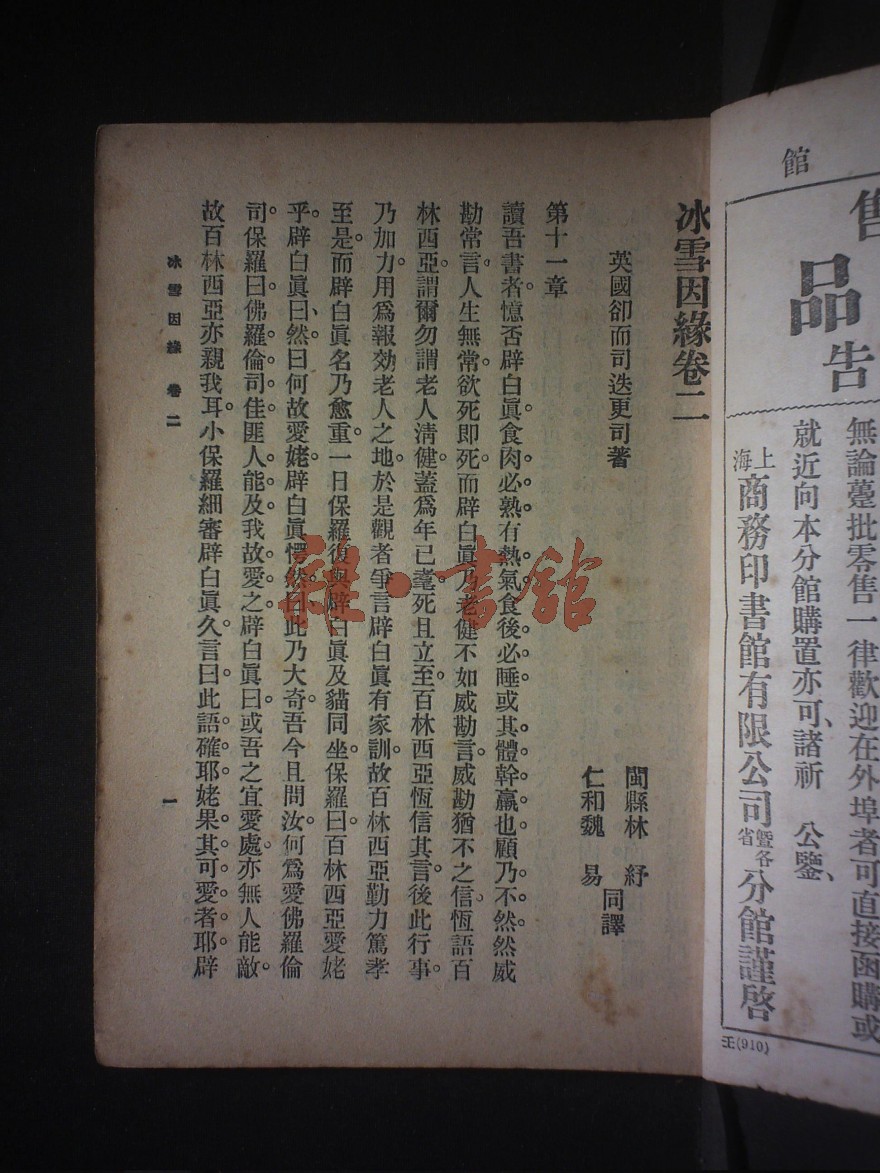 館
售
品
告
無論躉批零售一律歡迎在外埠者可直接函購或
就近向本分館購置亦可、諸祈　公鑒、
上海商務印書館有限公司暨各省分館謹啓
王(910)
冰雪因緣卷二
英國卻而司迭更司著
閩縣林　紓
仁和魏　易
同譯
第十一章
讀吾書者。憶否辟白眞食肉必熟有熱氣食後必睡或其體幹羸也。顧乃不然。然威
勘常言。人生無常。欲死即死。而辟白眞乃老健不如威勘言。威勘猶不之信。恆語百
林西亞。謂爾勿謂老人淸健。蓋爲年已耄。死且立至。百林西亞恆信其言。後此行事。
乃加力。用爲報効老人之地。於是觀者爭言辟白眞有家訓。故百林西亞勤力篤孝
至是。而辟白眞名乃愈重。一日保羅復與辟白眞及貓同坐。保羅曰。百林西亞愛姥
乎。辟白眞曰、然。曰何故愛姥。辟白眞愕然曰、此乃大奇。吾今且問汝。何爲愛佛羅倫
司。保羅曰。佛羅倫司佳。匪人能及我。故愛之。辟白眞曰。或吾之宜愛處。亦無人能敵。
故百林西亞亦親我耳。小保羅細審辟白眞久。言曰。此語確耶。姥果其可愛者耶。辟
冰雪因緣　卷二
一
雜·書館